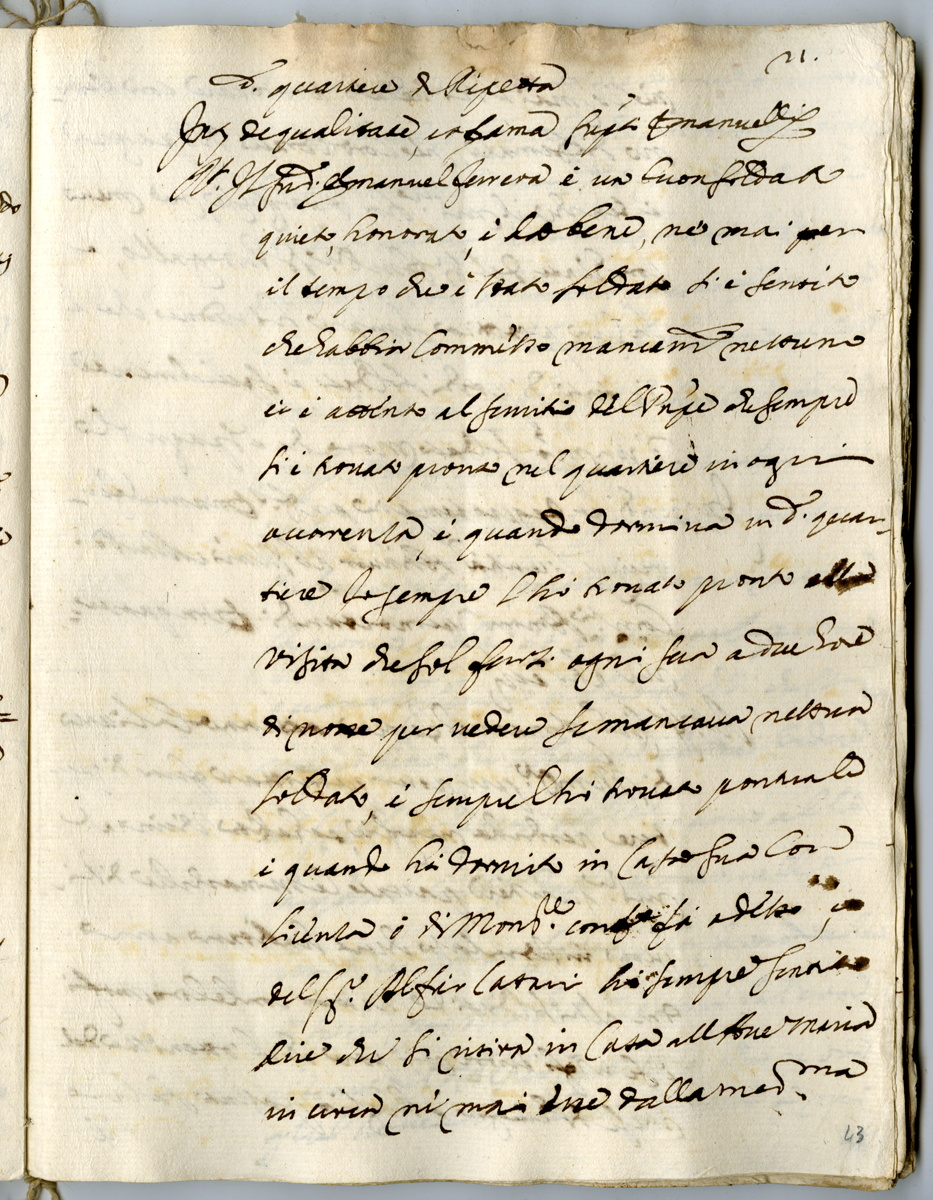 21.
d. quartiere di Ripetta
Int. de qualitate, et fama supti Emanuellis
Rt. Il sud. Emanuel Ferrera è un buon soldato
quieto, honorato, è da bene, ne mai per
il tempo che è stato soldato si è sentito
che habbia Commesso mancamto nessuno
et è attento al servitio del Prnpe che sempre
si è trovato pronto nel quartiere in ogni
occorrenza, è quando dormiva in d. quar-
tiere lo sempre l'hò trovato pronto alla
visita che sol farsi ogni sera a due hore
di notte per vedere se mancava nessun
soldato, è sempre l'hò trovato pontuale
è quando hà dormito in Casa sua Con
licenza ò di Monsre. come fà adesso, ò
del Sr. Alfier hò sempre sentito
dire che si ritira in Casa all'Ave Maria
in circa ne mai esce dalla medma
43